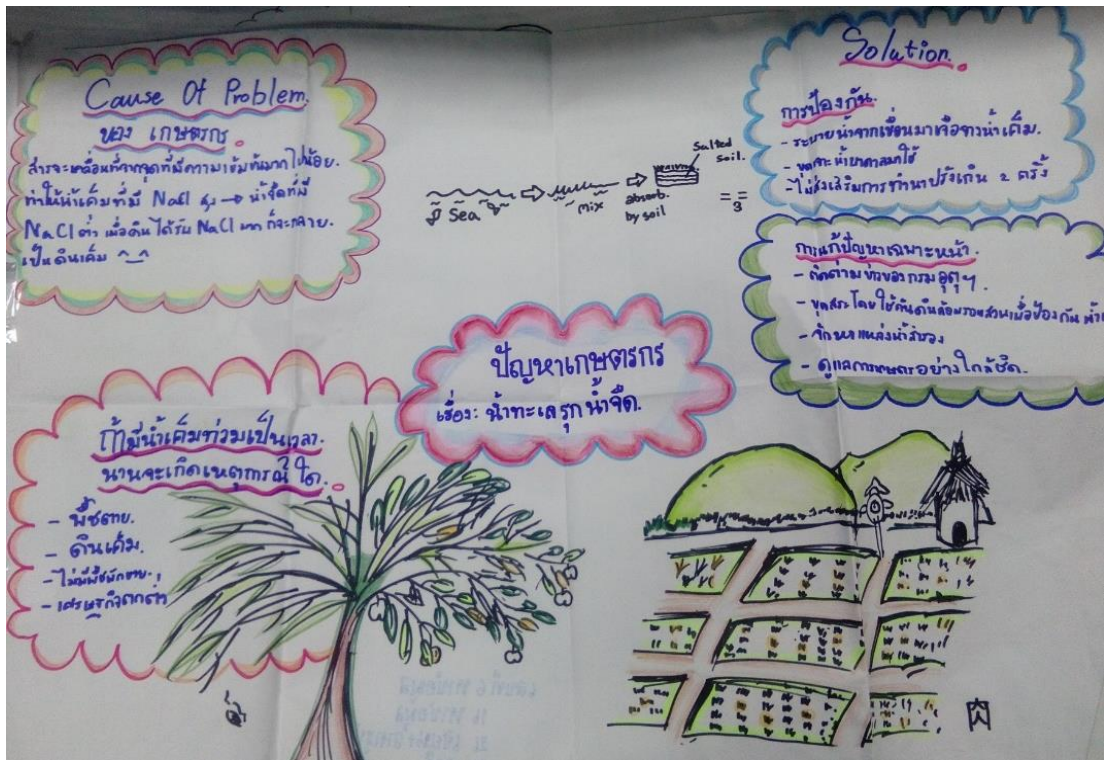 Cause Of Problem.
ของ เกษตรกร
สารจะเคลื่อนที่จากจุดที่มีความเข้มข้นมากไปน้อย.
ทำให้น้ำเค็มที่มี NaCl สูง → น้ำจืดที่มี
NaCl ต่ำ เมื่อดินได้รับ NaCl มาก ก็จะกลาย.
เป็นดินเค็ม ^_^
Sea
mix
absorb.
by soil
Salted
soil.
Solution.
การป้องกัน.
- ระบายน้ำจากเขื่อนมาเจือจางน้ำเค็ม.
- ขุดเจาะน้ำบาดาลมาใช้
- ไม่ส่งเสริมการทำนาปรังเกิน 2 ครั้ง
การแก้ปัญหาเฉพาะหน้า.
- ติดตามข่าวของกรมอุตุฯ
- ขุดสระโดยใช้คันดินล้อมรอบสวนเพื่อป้องกัน
- จัดหาแหล่งน้ำสำรอง
- ดูแลการเกษตรอย่างใกล้ชิด.
ปัญหาเกษตรกร
เรื่อง: น้ำทะเลรุกน้ำจืด.
ถ้ามีน้ำเค็มท่วมเป็นเวลา.
นานจะเกิดเหตุการณ์ใด.
- พืชตาย.
- ดินเค็ม.
- ไม่มีพืชผักขาย.
- เศรษฐกิจตกต่ำ